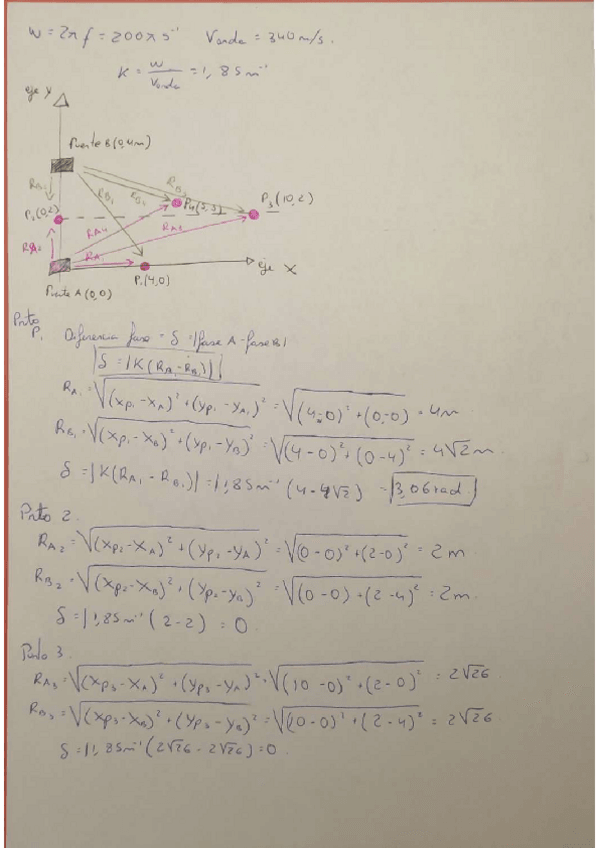 w = 2π f = 200π s⁻¹ Vonda = 340 m/s.
K = w/Vonda = 1,85 m⁻¹
eje Y
Fuente B(0,4m)
RB2 RB1 RB4 RB3
P2(0,2) P4(5,3) P3(10,2)
RA2 RA4 RA3
RA1
eje X
Fuente A(0,0) P1(4,0)
Pnto
P1 Diferencia fase = δ = |fase A - fase B|
|δ = |K(RA1 - RB1)||
RA1 = √((xp1 - xA1)² + (yp1 - yA1)²) = √((4-0)² + (0-0)²) = 4m
RB1 = √((xp1 - xB)² + (yp1 - yB)²) = √((4-0)² + (0-4)²) = 4√2 m.
δ = |K(RA1 - RB1)| = |1,85m⁻¹ (4-4√2) = |3,06 rad.|
Pnto 2.
RA2 = √((xp2 - xA)² + (yp2 - yA)²) = √((0-0)² + (2-0)²) = 2 m.
RB2 = √((xp2 - xB)² + (yp2 - yB)²) = √((0-0) + (2-4)²) = 2m.
δ = |1,85m⁻¹ (2-2) = 0.
Punto 3.
RA3 = √((xp3 - xA)² + (yp3 - yA)²) = √((10-0)² + (2-0)²) = 2√26.
RB3 = √((xp3 - xB)² + (yp3 - yB)²) = √((10-0)² + (2-4)²) = 2√26
δ = |1,85m⁻¹ (2√26 - 2√26) = 0.